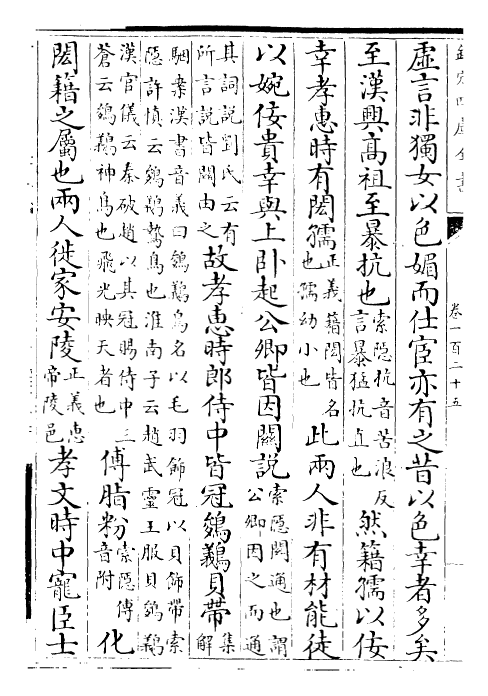 欽定四庫全書
卷一百二十五
虛言非獨女以色媚而仕宦亦有之昔以色幸者多矣
至漢興髙祖至暴抗也索隱抗音苦浪反言暴猛抗直也然籍孺以佞
幸孝惠時有閎孺正義籍閎皆名也孺幼小也此兩人非有材能徒
以婉佞貴幸與上卧起公卿皆因關說索隱關通也謂公卿因之而通
其詞說劉氏云有所言說皆關由之故孝恵時郎侍中皆冠鵔鸃貝帶集解
駰案漢書音義曰鵔鸃鳥名以毛羽飾冠以貝飾帶索
隱許慎云鵔鸃鷙鳥也淮南子云趙武靈王服貝鵔鸃
漢官儀云秦破趙以其冠賜侍中三蒼云鵔鸃神鳥也飛光映天者也傅脂粉索隱傅音附化
閎籍之屬也兩人徙家安陵正義恵帝陵邑孝文時中寵臣士